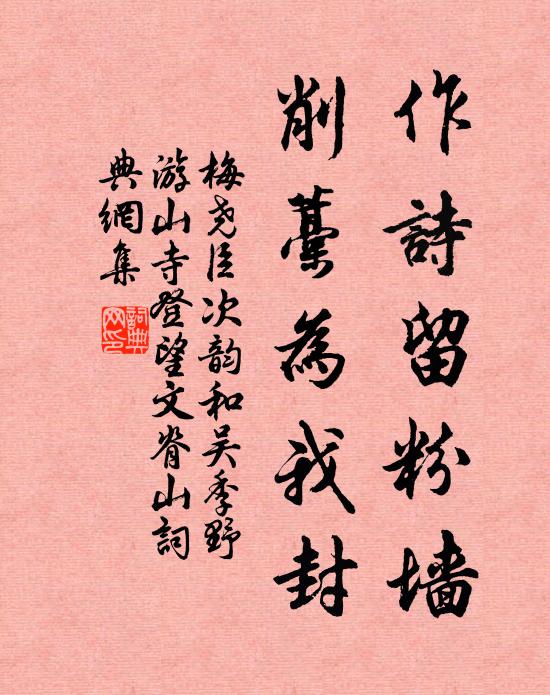 作詩留粉墙
削藳為我封
梅尧臣次韵和吴季野
游山寺登望文脊山詞
典網集
詞典网印